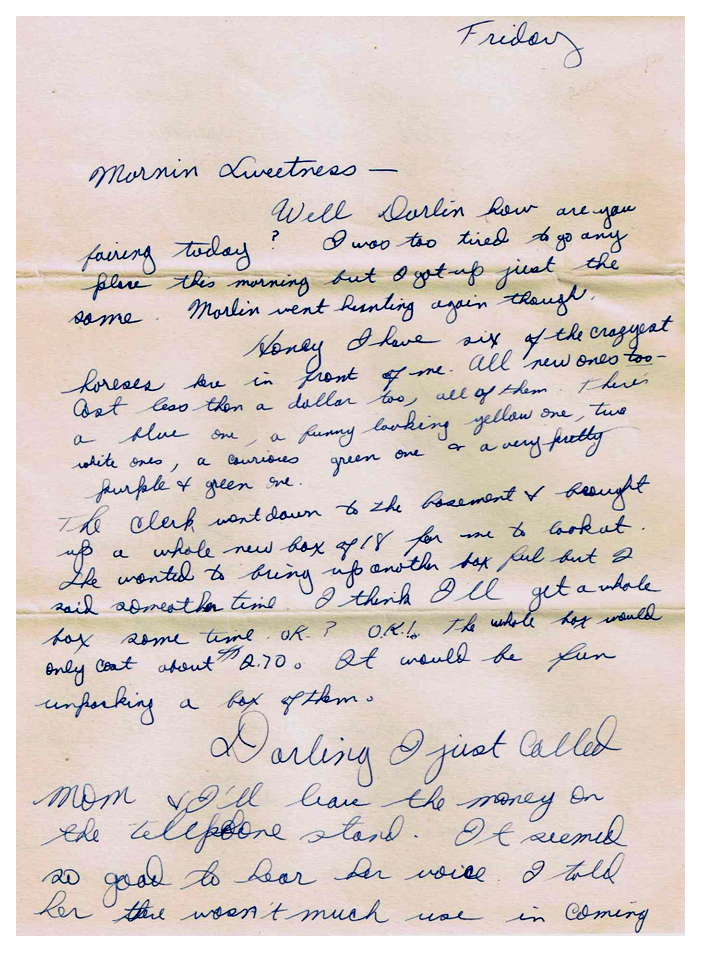 Friday
Mornin Sweetness —
Well Darlin how are you
fairing today? I was too tired to go any
place this morning but I got up just the
same. Marlin went hunting again though.
Honey I have six of the crazyest
horeses here in front of me. All new ones too -
Cost less then a dollar too, all of them. There's
a blue one, a funny looking yellow one, two
white ones, a courious green one & a very pretty
purple & green one.
The clerk went down to the basement & brought
up a whole new box of 18 for me to look at.
She wanted to bring up another box full but I
said someother time. I think I'll get a whole
box some time. OK.? O.K.!. The whole box would
only cost about $2.70. It would be fun
unpacking a box of them.
Darling I just called
Mom & I'll leave the money on
the tellephone stand. It seemed
so good to hear her voice. I told
her there wasn't much use in coming